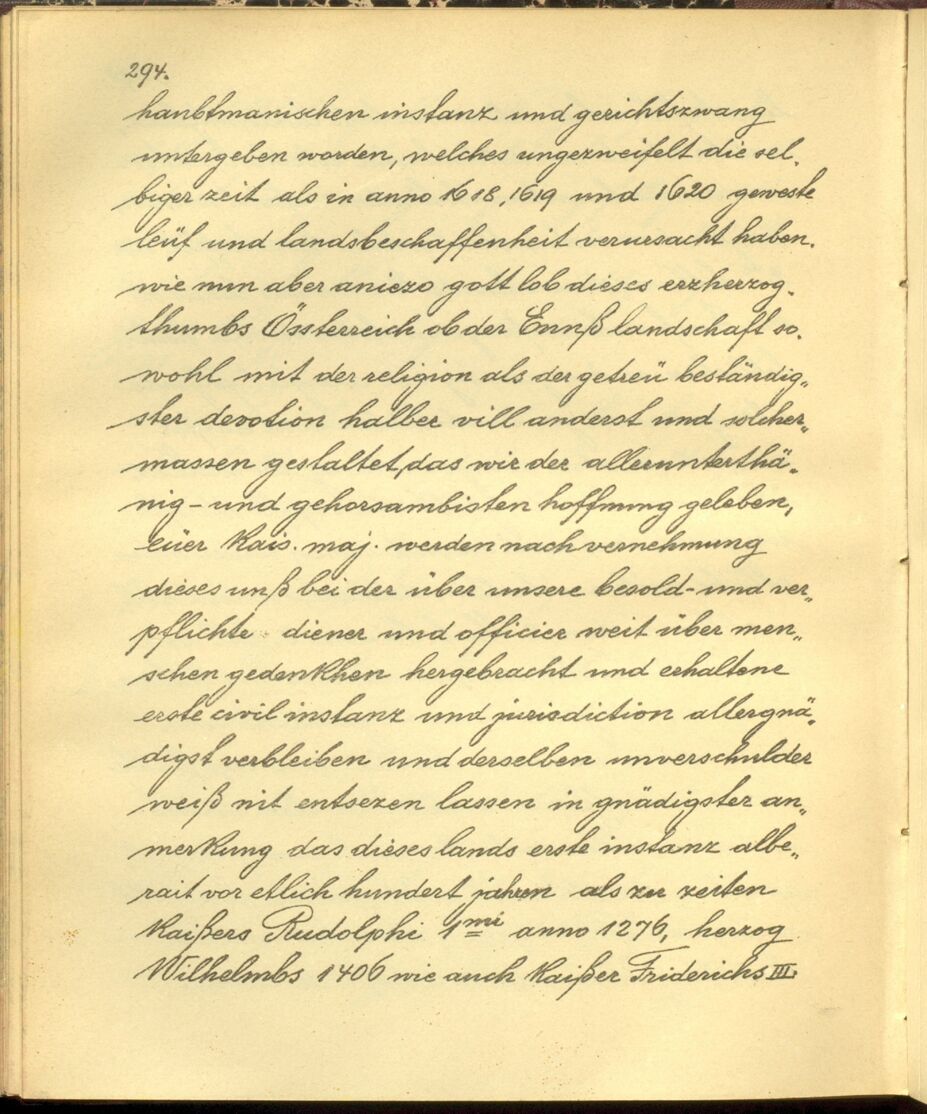 294.
haubtmanischen instanz und gerichtszwang
untergeben worden, welches ungezweifelt die sel-
biger zeit als in anno 1618, 1619 und 1620 geweste
leüf und landsbeschaffenheit verursacht haben.
wie nun aber aniezo gott lob dieses erzherzog-
thumbs Össterreich ob der Ennß landschaft so-
wohl mit der religion als der getreü beständig-
ster devotion halber vill anderst und solcher-
massen gestaltet, das wir der allerunterthä-
nig- und gehorsambisten hoffnung geleben,
eüer kais. maj. werden nach vernehmung
dieses unß bei der über unsere besold- und ver-
pflichte diener und officier weit über men-
schen gedenkhen hergebracht und erhaltene
erste civil instanz und jurisdiction allergnä-
digst verbleiben und derselben unverschulder
weiß nit entsezen lassen in gnädigster an-
merkung das dieses lands erste instanz albe-
rait vor etlich hundert jahren als zu zeiten
kaißers Rudolphi 1mi anno 1276, herzog
Wilhelmbs 1406 wie auch kaißer Friderichs III.